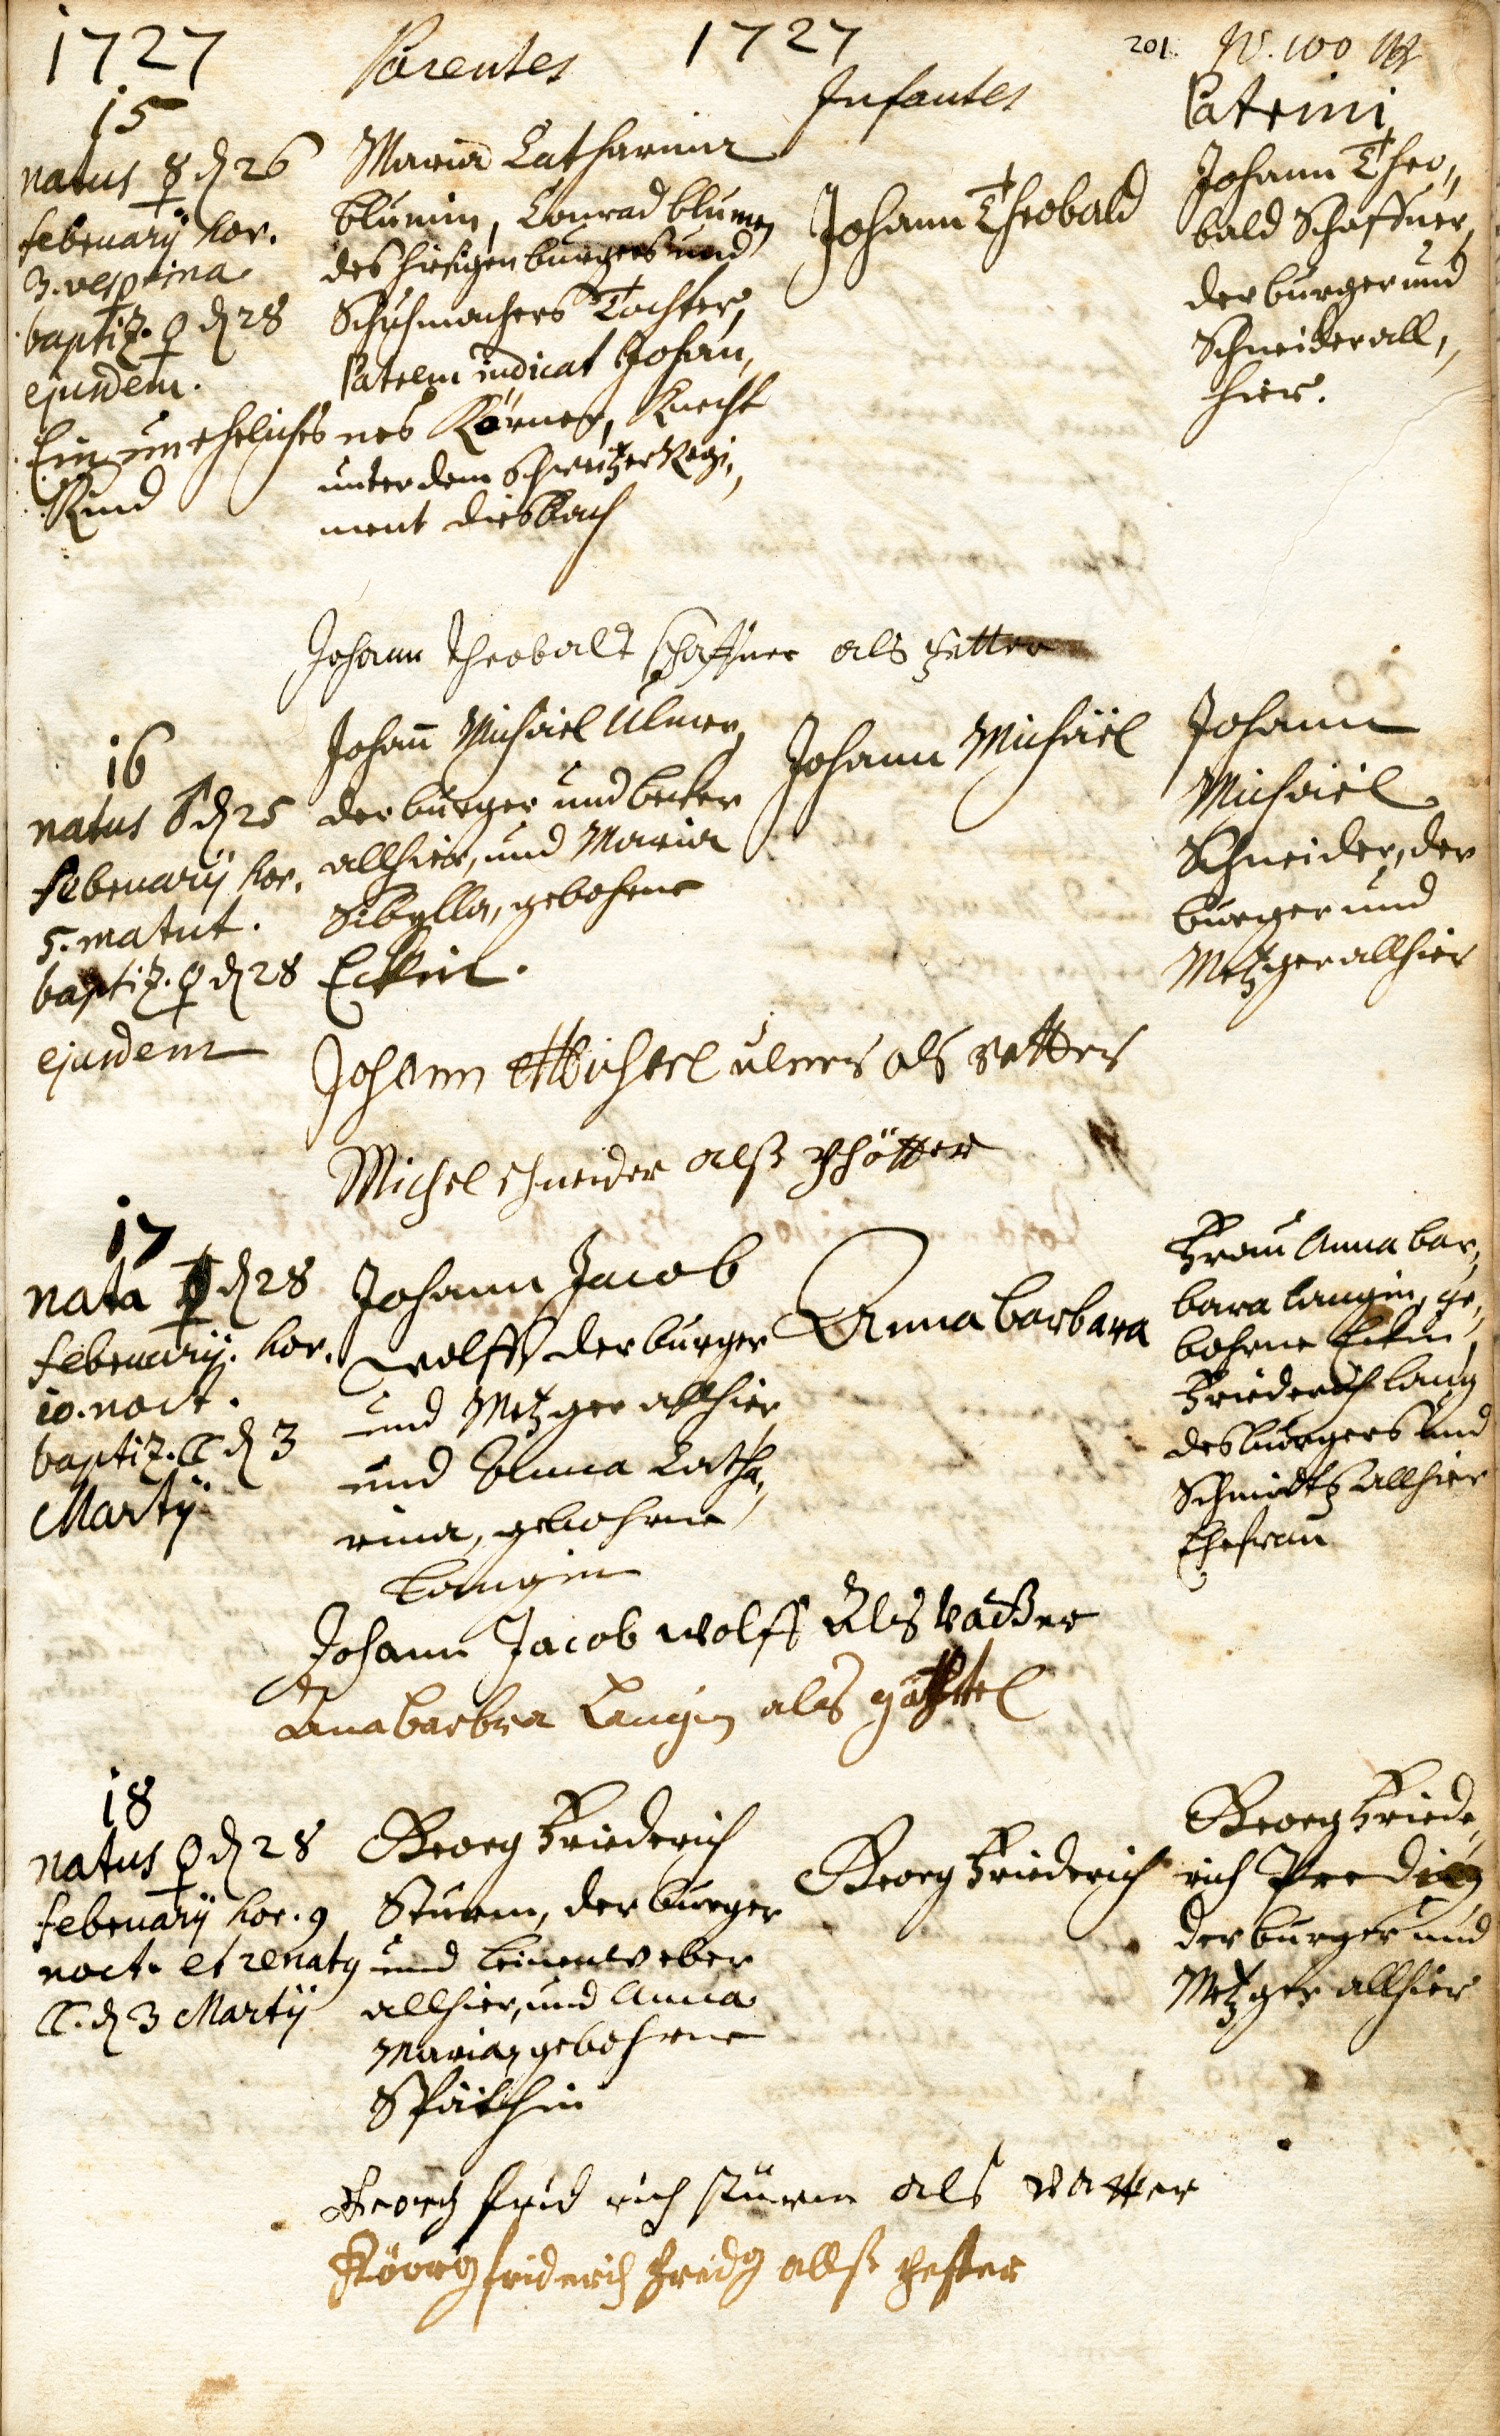 1727 Parentes 1727 Infantes 201. N. 100
Patrini
15
natus ☿ d 26
february hor.
3. vespertina
baptiz. ♀ d 28
ejusdem.
Ein uneheliches
Kind
Maria Catharina
Blumin, Conrad Blumen
des hiesigen burgers und
Schuhmachers Tochter,
Patrem indicat Johan„
nes Körner, Knecht
unter dem Schweitzer Regi„
ment Diesbach
Johann Theobald
Johann Theo„
bald Schaffner,
der burger und
Schneider all„
hier.
Johann Theobalt schaffner als Petter
16
natus ♂ d 25
february hor.
5. matut.
baptiz. ♀ d 28
ejusdem
Johann Michäel Ulmer,
der burger und becker
allhier, und Maria
Sibylla, gebohrne
Johann Michäel
Johann
Michäel
Schneider, der
burger und
Metzger allhier
Johann Michael ulmer als vatter
Michel schneider alß
17
nata ♀ d 28
february. hor.
10. noct.
baptiz. ☾ d 3
Martÿ
Johann Jacob
Wolff der burger
und Metzger allhier
und Anna Catha„
rina, gebohrne
Langin
Anna Barbara
Frau Anna Bar„
bara Langin, ge„
bohrne
Friederich Lang
des burgers und
Schmidts allhier
Ehefrau
Johann Jacob Wolff Als vatter
Anabarbra Langin als göttel
18
natus ♀ d 28
february hor. 9
noct. et renatq
☾. d 3 Martÿ
Georg Friederich
Sturm, der burger
und Leinenweber
allhier, und Anna
Maria, gebohrne
Späthin
Georg Friederich
Georg Friede„
rich Predig
der burger und
Metzger allhier
Georg frid rich sturm als vatter
friderich Predig allß Petter